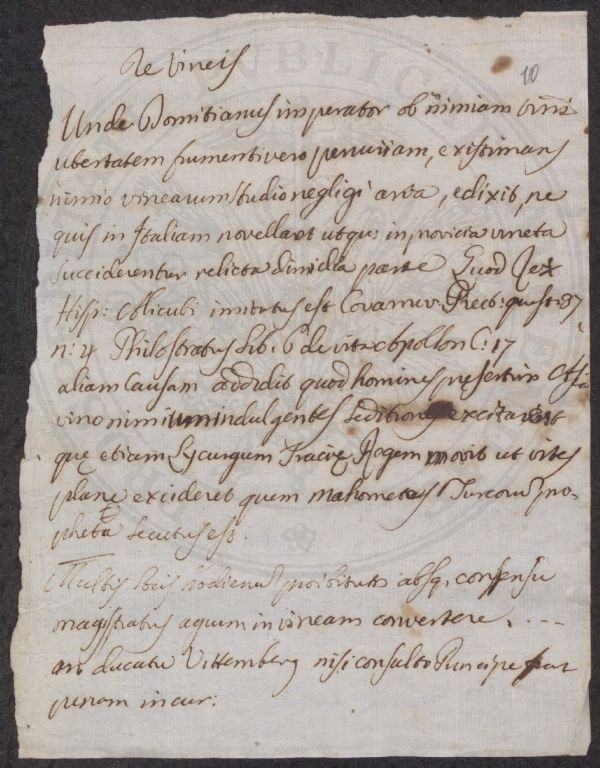 De Vineis
10
Unde Domitianus imperator ob nimiam vini
ubertatem frumenti vero penuriam, existimans
nimio vinearum studio negligi arva, edixit, ne
quis in Italiam novellaret utque in provicia vineta
succiderentur relicta dimidia parte Quod Rex
Hisp: alicubi imitatus est Covarruv: Pract: quest: 37
n: 4 Philostratus lib: 6 de vita Apollon C: 17
aliam causam addidit quod homines presertim
vino nimium indulgentes seditiones excitarent
quę etiam Lycurgum Tracię Regem movit ut vites
plane excideret quem Mahometes Turcorum pro-
pheta secutus est.
Multis locis hodienum proibitum absq, consensu
magistratus agrum in vineam convertere. . - -
in ducatu Vittemberg nisi consulto Principe
penam incur: